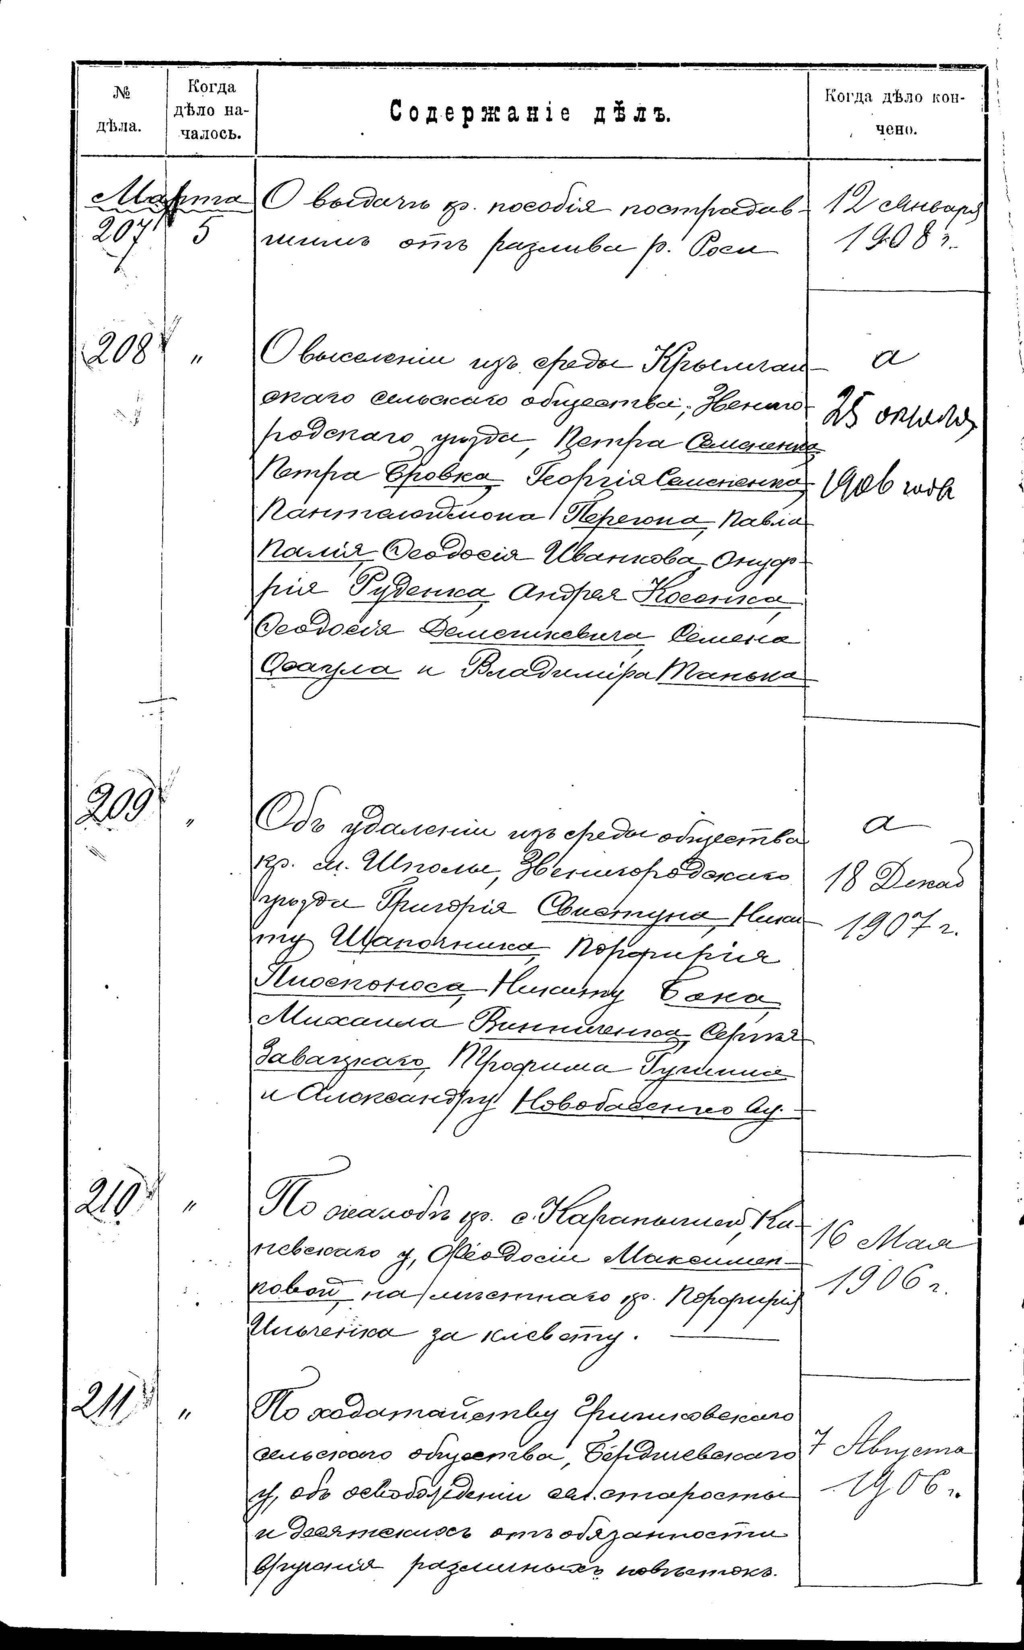 № дѣла.
Когда дѣло на-
чалось.
Содержаніе дѣлъ.
Когда дѣло кон-
чено.
Марта
207 5 О выдачѣ кр. пособія пострадав-
шимъ отъ разлива р. Роси
12 Января
1908 г.
208 " О выселеніи изъ среды
скаго сельскаго общества, Звениго-
родскаго уѣзда, Петра Семененка,
Петра Бровка, Георгія Семененка,
Пантелеймона Перегона, Павла
Палія, Ѳеодосія Иванкова, Онуф-
рія Руденка, Андрея Косенка,
Ѳеодосія Демешкевича, Семена
Осаула и Владиміра Танька
а
25
1906 года
209 " Объ удаленіи изъ среды общества
кр. м. Шполы, Звенигородскаго
уѣзда Григорія Свистуна, Ники-
ту Шапочника, Порфирія
Плосконоса, Никиту Бака,
Михаила Винниченка, Сергѣя
Завацкаго, Трофима
и Александру
а
18 Декаб
1907 г.
210 " По жалобѣ кр. с. Карапышей, Ка-
невскаго у, Ѳеодосіи Максимен-
ковой, на кр. Порфирія
Ильченка за клевету.
16 Мая
1906 г.
211 " По ходатайству
сельскаго общества, Бердичевскаго
у, объ освобожденіи сел. старосты
и десятскихъ отъ обязанности
врученія различныхъ повѣстокъ.
7 Августа
1906 г.